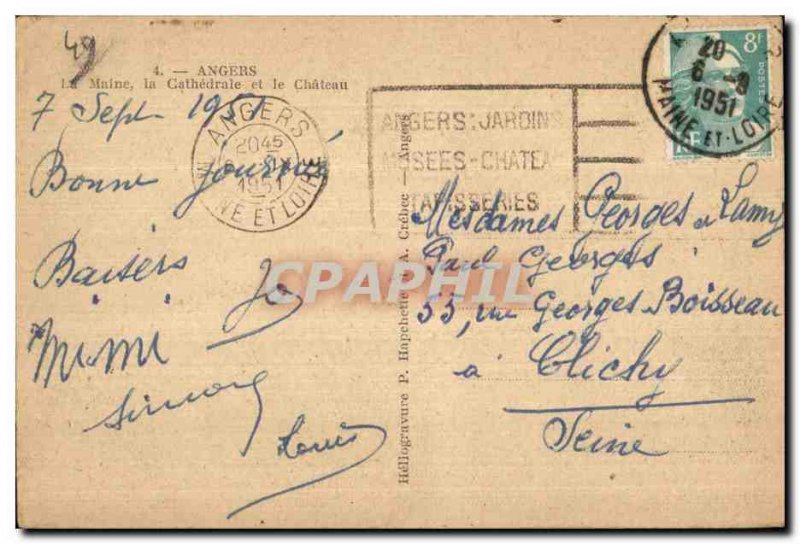 49
4. — ANGERS
La Maine, la Cathédrale et le Château
7 Sept 1951
Bonne journée
Baisers
Jo
Mimi
Simone
Louis
ANGERS
20 45
1951
MAINE ET LOIRE
ANGERS: JARDINS
MUSEES - CHATEAUX
TAPISSERIES
20
6 - 9
1951
MAINE-ET-LOIRE
8F
POSTES
RF
Héliogravure P. Hapchette A. Crébec — Angers
CPAPHIL
Mesdames Georges et Lamy
Paul Georges
53, rue Georges Boisseau
à Clichy
Seine